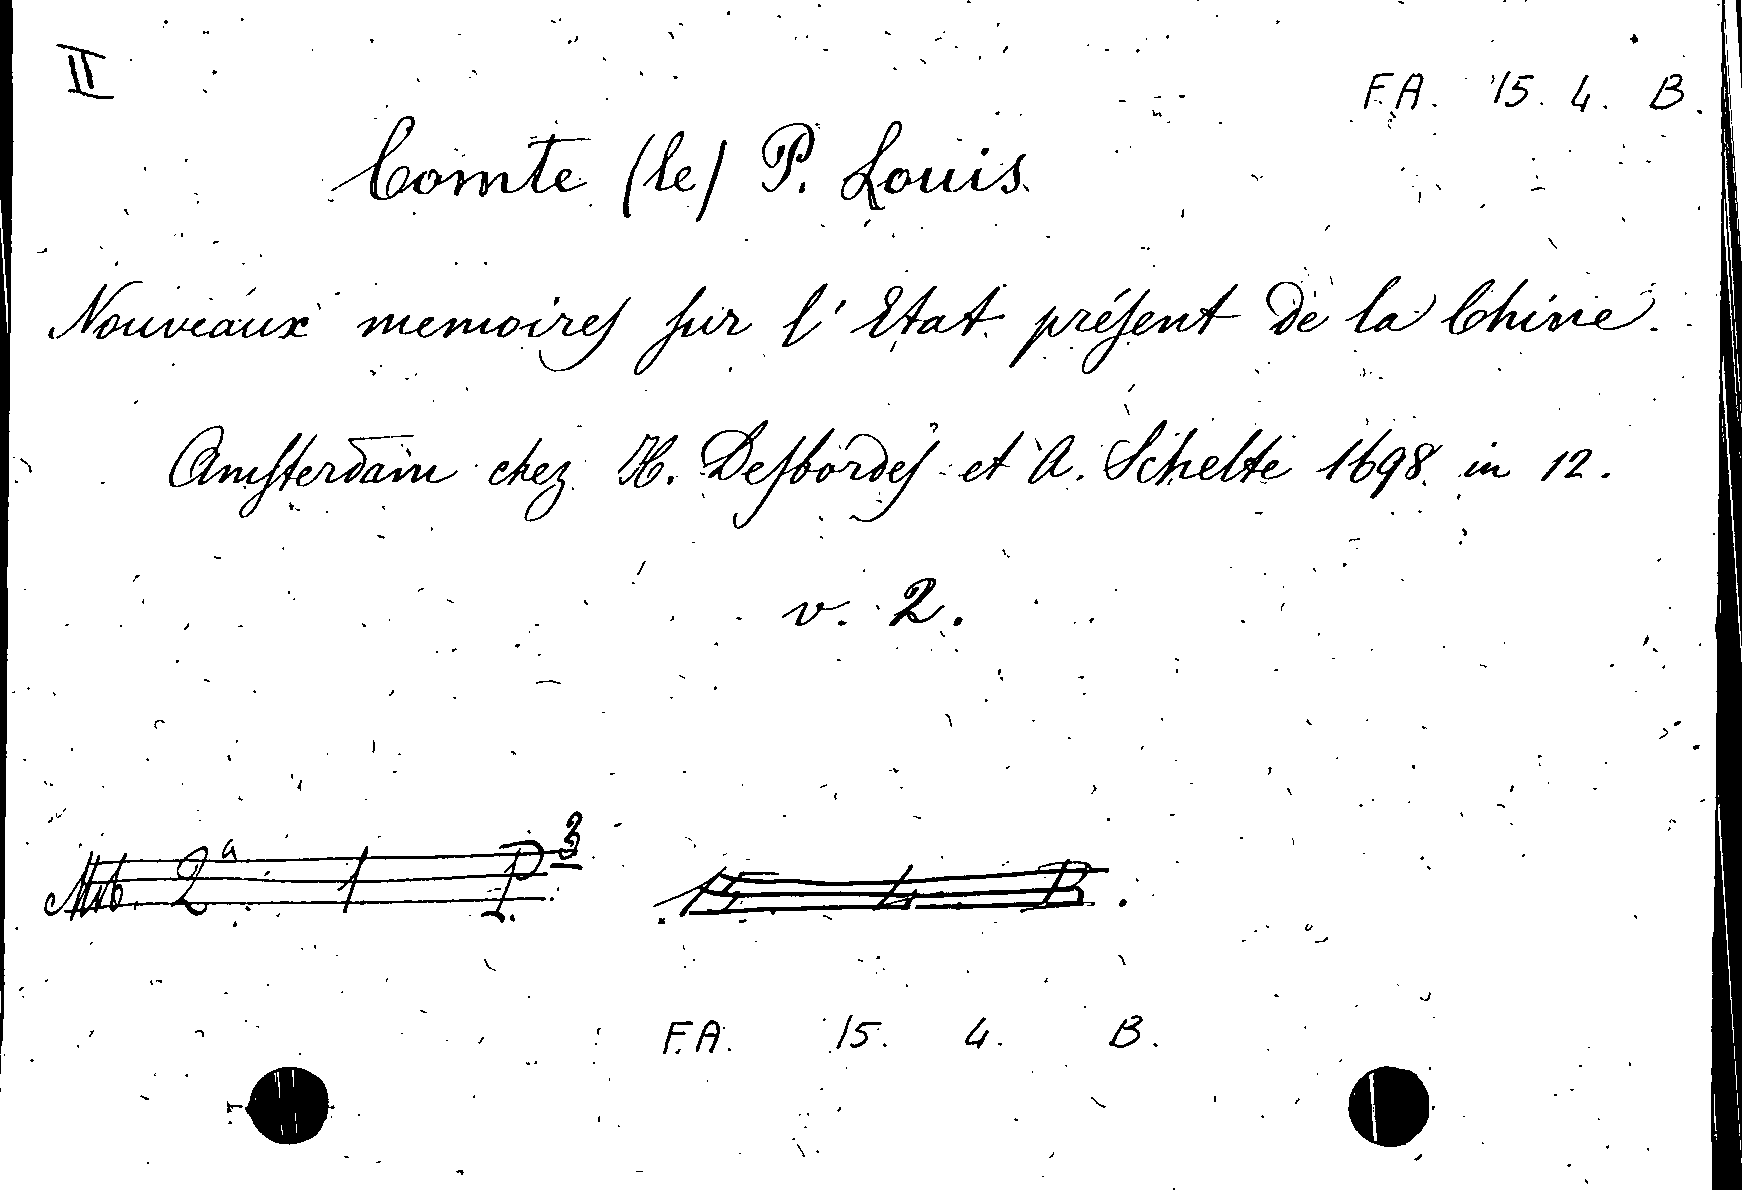 II
F.A. 15. 4. B.
Comte (le) P. Louis.
Nouveaux memoires sur l'Etat présent de la Chine.
Amsterdam chez H. Desbordes et A. Schelte 1698 in 12.
v. 2.
2a 1 P 3 15 4 B.
F.A. 15. 4. B.